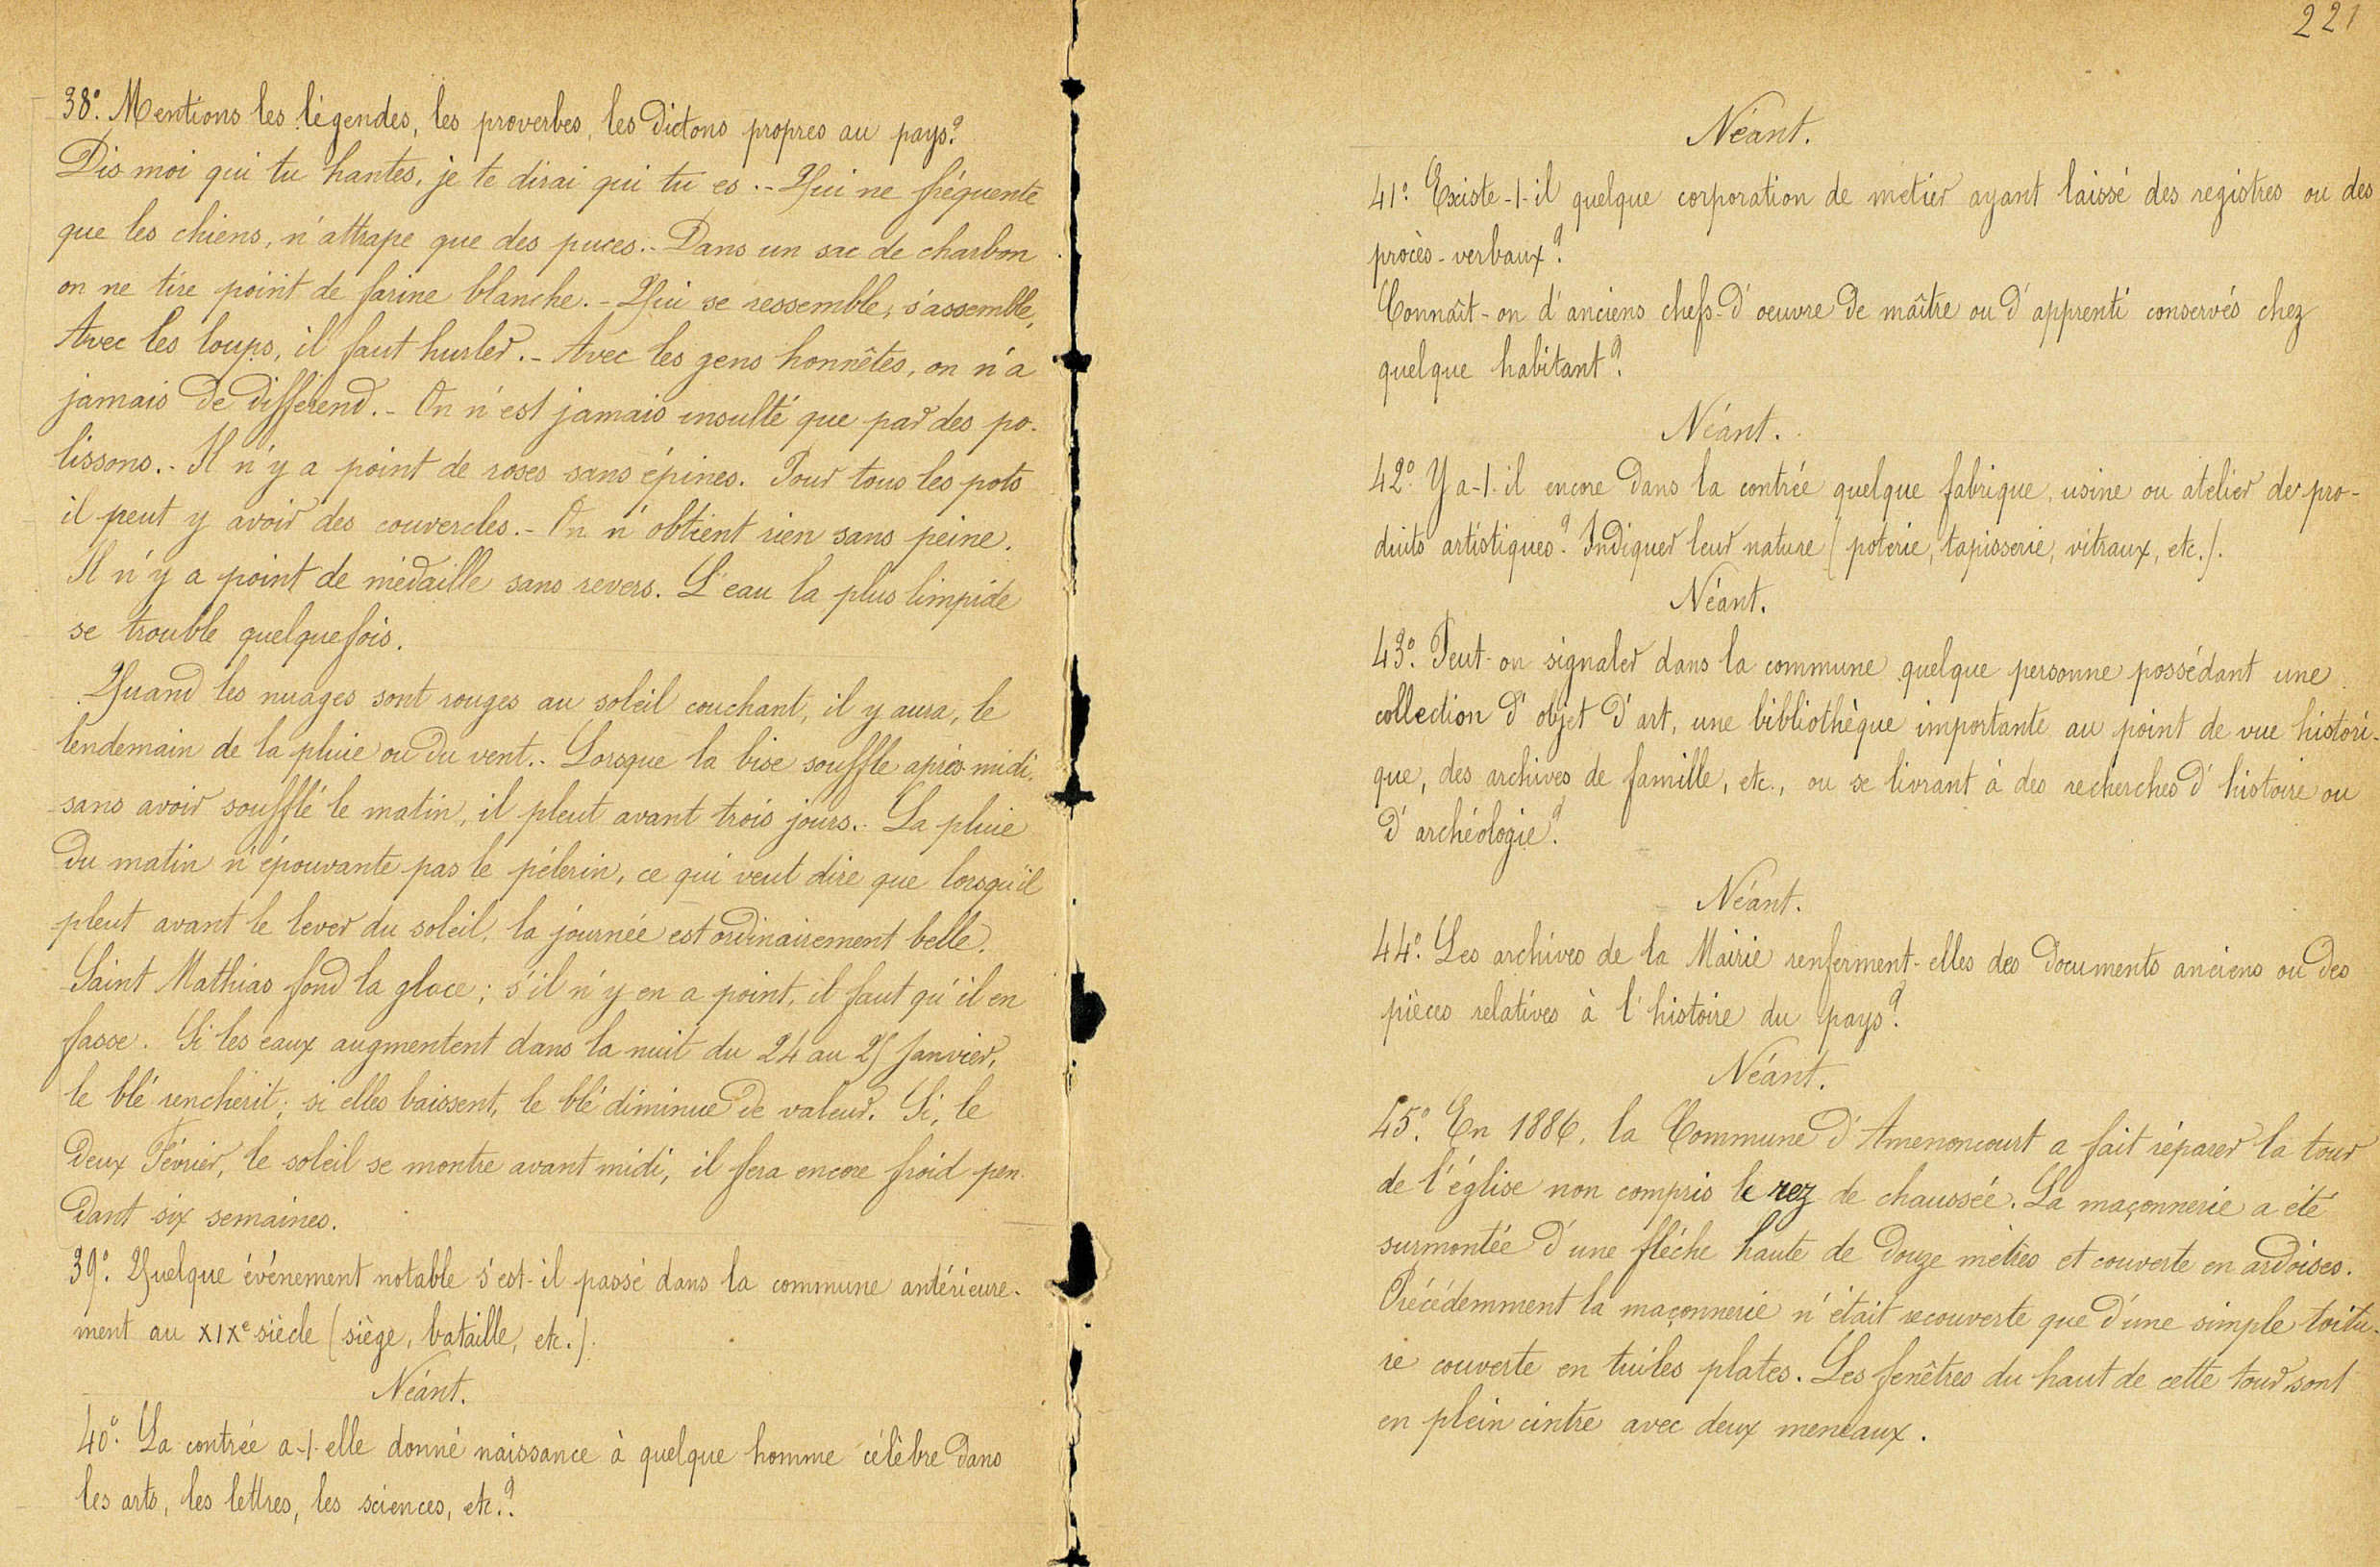 38º. Mentions les légendes, les proverbes, les dictons propres au pays?
Dis moi qui tu hantes, je te dirai qui tu es. - Qui ne fréquente
que les chiens, n'attrape que des puces. - Dans un sac de charbon
on ne tire point de farine blanche. - Qui se ressemble, s'assemble,
Avec les loups, il faut hurler. - Avec les gens honnêtes, on n'a
jamais de différend. - On n'est jamais insulté que par des po-
lissons. - Il n'y a point de roses sans épines. Pour tous les pots
il peut y avoir des couvercles. - On n'obtient rien sans peine.
Il n'y a point de médaille sans revers. L'eau la plus limpide
se trouble quelquefois.
Quand les nuages sont rouges au soleil couchant, il y aura, le
lendemain de la pluie ou du vent. - Lorsque la bise souffle après-midi,
sans avoir soufflé le matin, il pleut avant trois jours. - La pluie
du matin n'épouvante pas le pélerin, ce qui veut dire que lorsqu'il
pleut avant le lever du soleil, la journée est ordinairement belle.
Saint Mathias fond la glace; s'il n'y en a point, il faut qu'il en
fasse. Si les eaux augmentent dans la nuit du 24 au 25 Janvier,
le blé renchérit; si elles baissent, le blé diminue de valeur. Si, le
deux Février, le soleil se montre avant midi, il fera encore froid pen-
dant six semaines.
39º. Quelque événement notable s'est-il passé dans la commune antérieure-
ment au XIXe siècle (siège, bataille, etc.).
Néant.
40º. La contrée a-t-elle donné naissance à quelque homme célèbre dans
les arts, les lettres, les sciences, etc.?
221
Néant.
41º. Existe-t-il quelque corporation de métier ayant laissé des registres ou des
procès-verbaux?
Connaît-on d'anciens chefs-d'oeuvre de maître ou d'apprenti conservés chez
quelque habitant?
Néant.
42º. Y a-t-il encore dans la contrée quelque fabrique, usine ou atelier de pro-
duits artistiques? Indiquer leur nature (poterie, tapisserie, vitraux, etc.).
Néant.
43º. Peut-on signaler dans la commune quelque personne possédant une
collection d'objet d'art, une bibliothèque importante au point de vue histori-
que, des archives de famille, etc., ou se livrant à des recherches d'histoire ou
d'archéologie?
Néant.
44º. Les archives de la Mairie renferment-elles des documents anciens ou des
pièces relatives à l'histoire du pays?
Néant.
45º. En 1886, la Commune d'Amenoncourt a fait réparer la tour
de l'église non compris le rez de chaussée. La maçonnerie a été
surmontée d'une flèche haute de douze mètres et couverte en ardoises.
Précédemment la maçonnerie n'était recouverte que d'une simple toitu-
re couverte en tuiles plates. Les fenêtres du haut de cette tour sont
en plein cintre avec deux meneaux.